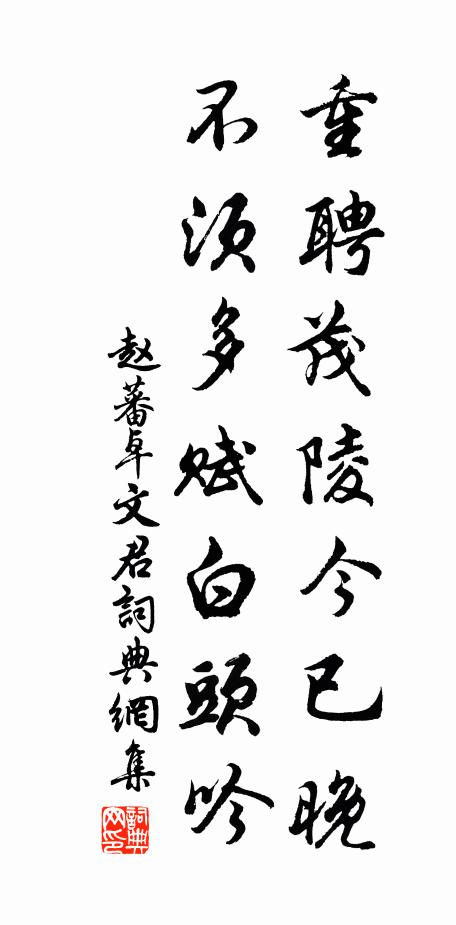 重聘茂陵今已晚
不须多赋白頭吟
赵蕃卓文君詞典網集
詞典
网印